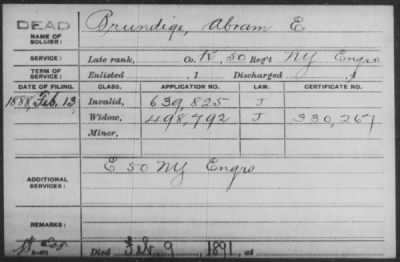 DEAD
NAME OF SOLDIER: Brundige, Abram E.
SERVICE: Late rank, Co. K, 50 Reg't NY Engrs
TERM OF SERVICE: Enlisted , 1 Discharged , 1
DATE OF FILING. CLASS. APPLICATION NO. LAW. CERTIFICATE NO.
1888, Feb. 13 Invalid, 639,825 J
Widow, 498,792 J 330,261
Minor,
ADDITIONAL SERVICES: E 50 NY Engrs
REMARKS:
Died Feb. 9 1891, at